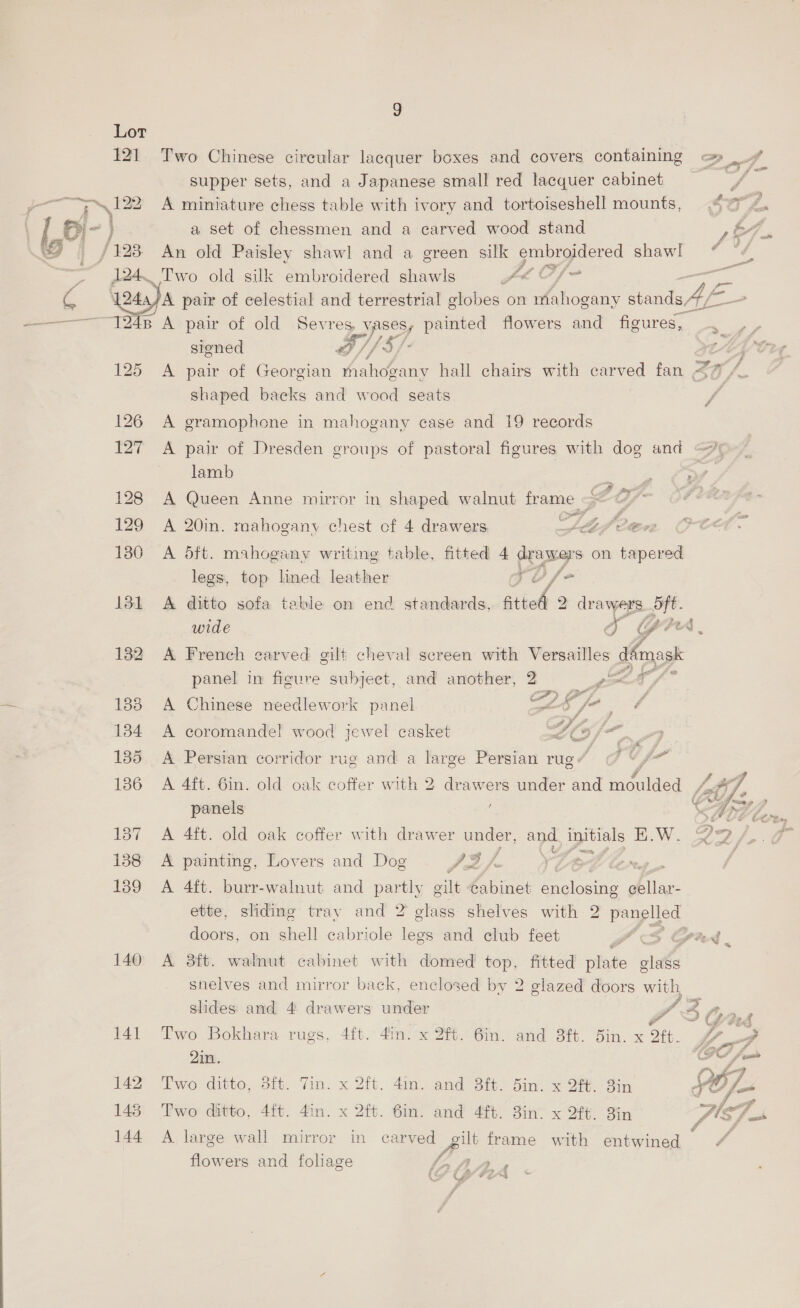 9
Lot
121 Two Chinese circular lacquer boxes and covers containing
supper sets, and a Japanese small red lacquer cabinet
122 A miniature chess table with ivory and tortoiseshell mounts,
a set of chessmen and a carved wood stand
123 An old Paisley shawl and a green silk embroidered shawl
124 Two old silk embroidered shawls
124A A pair of celestial and terrestrial globes on mahogany stands
124B A pair of old Sevres vases, painted flowers and figures,
signed
125 A pair of Georgian mahogany hall chairs with carved fan
shaped backs and wood seats
126 A gramophone in mahogany case and 19 records
127 A pair of Dresden groups of pastoral figures with dog and
lamb
128 A Queen Anne mirror in shaped walnut frame
129 A 20in. mahogany chest of 4 drawers
130 A 5ft. mahogany writing table, fitted 4 drawers on tapered
legs, top lined leather
131 A ditto sofa table on end standards, fitted 2 drawers 5ft.
wide
132 A French carved gilt cheval screen with Versailles damask
panel in figure subject, and another, 2
133 A Chinese needlework panel
134 A coromandel wood jewel casket
135 A Persian corridor rug and a large Persian rug
136 A 4ft. 6in. old oak coffer with 2 drawers under and moulded
panels
137 A 4ft. old oak coffer with drawer under, and initials E.W.
138 A painting, Lovers and Dog
139 A 4ft. burr-walnut and partly gilt cabinet enclosing cellar-
ette, sliding tray and 2 glass shelves with 2 panelled
doors, on shell cabriole legs and club feet
140 A 3ft. walnut cabinet with domed top, fitted plate glass
shelves and mirror back, enclosed by 2 glazed doors with
slides and 4 drawers under
141 Two Bokhara rugs, 4ft. 4in. x 2ft. 6in. and 3ft. 5in. x 2ft.
2in.
142 Two ditto, 3ft. 7in. x 2ft. 4in. and 3ft. 5in. x 2ft. 3in
143 Two ditto, 4ft. 4in. x 2ft. 6in. and 4ft. 3in. x 2ft. 3in
144 A large wall mirror in carved gilt frame with entwined
flowers and foliage